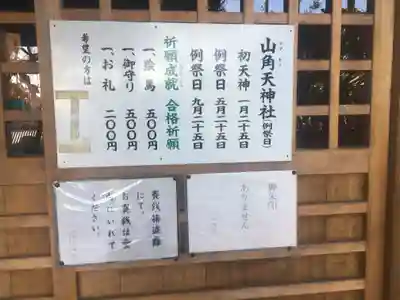 山角天神社(例祭日)
初天神 一月二十五日
例祭日 五月二十五日
例祭日 九月二十五日
祈願成就 合格祈願
一、絵馬 五〇〇円
一、御守り 五〇〇円
一、お札 二〇〇円
希望の方は
御朱印
ありません
賽銭箱盗難
にて、
お賽銭は
ください。